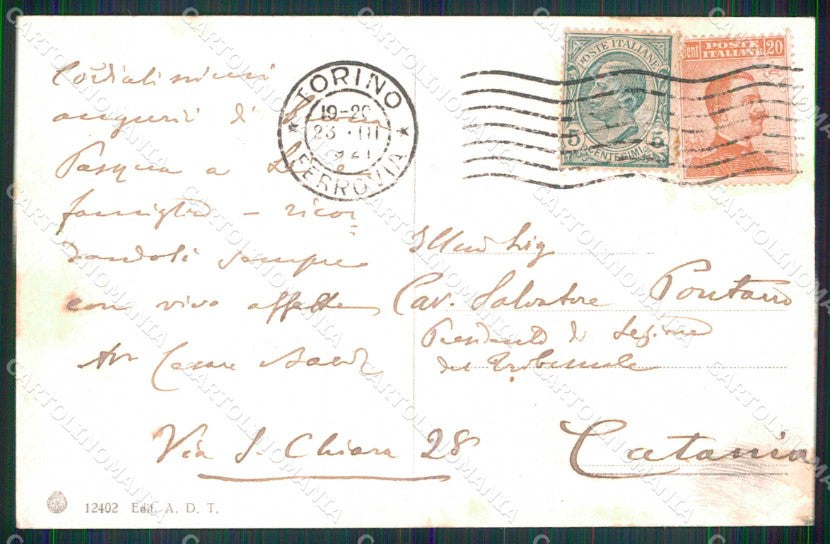 Cordialissimi
auguri di buona
Pasqua a Lei
famiglia – ricor
dandoli sempre
con vivo affetto
Avv Cesare
Via S. Chiara 28
TORINO
19-20
23 · III
1921
FERROVIA
POSTE ITALIANE
5 5
CENTESIMI
Cent 20
POSTE
ITALIANE
Illmo Sig
Cav. Salvatore Pontano
Presidente di Sezione
del Tribunale
Catania
12402 Edit. A. D. T.
CARTOLINOMANIA